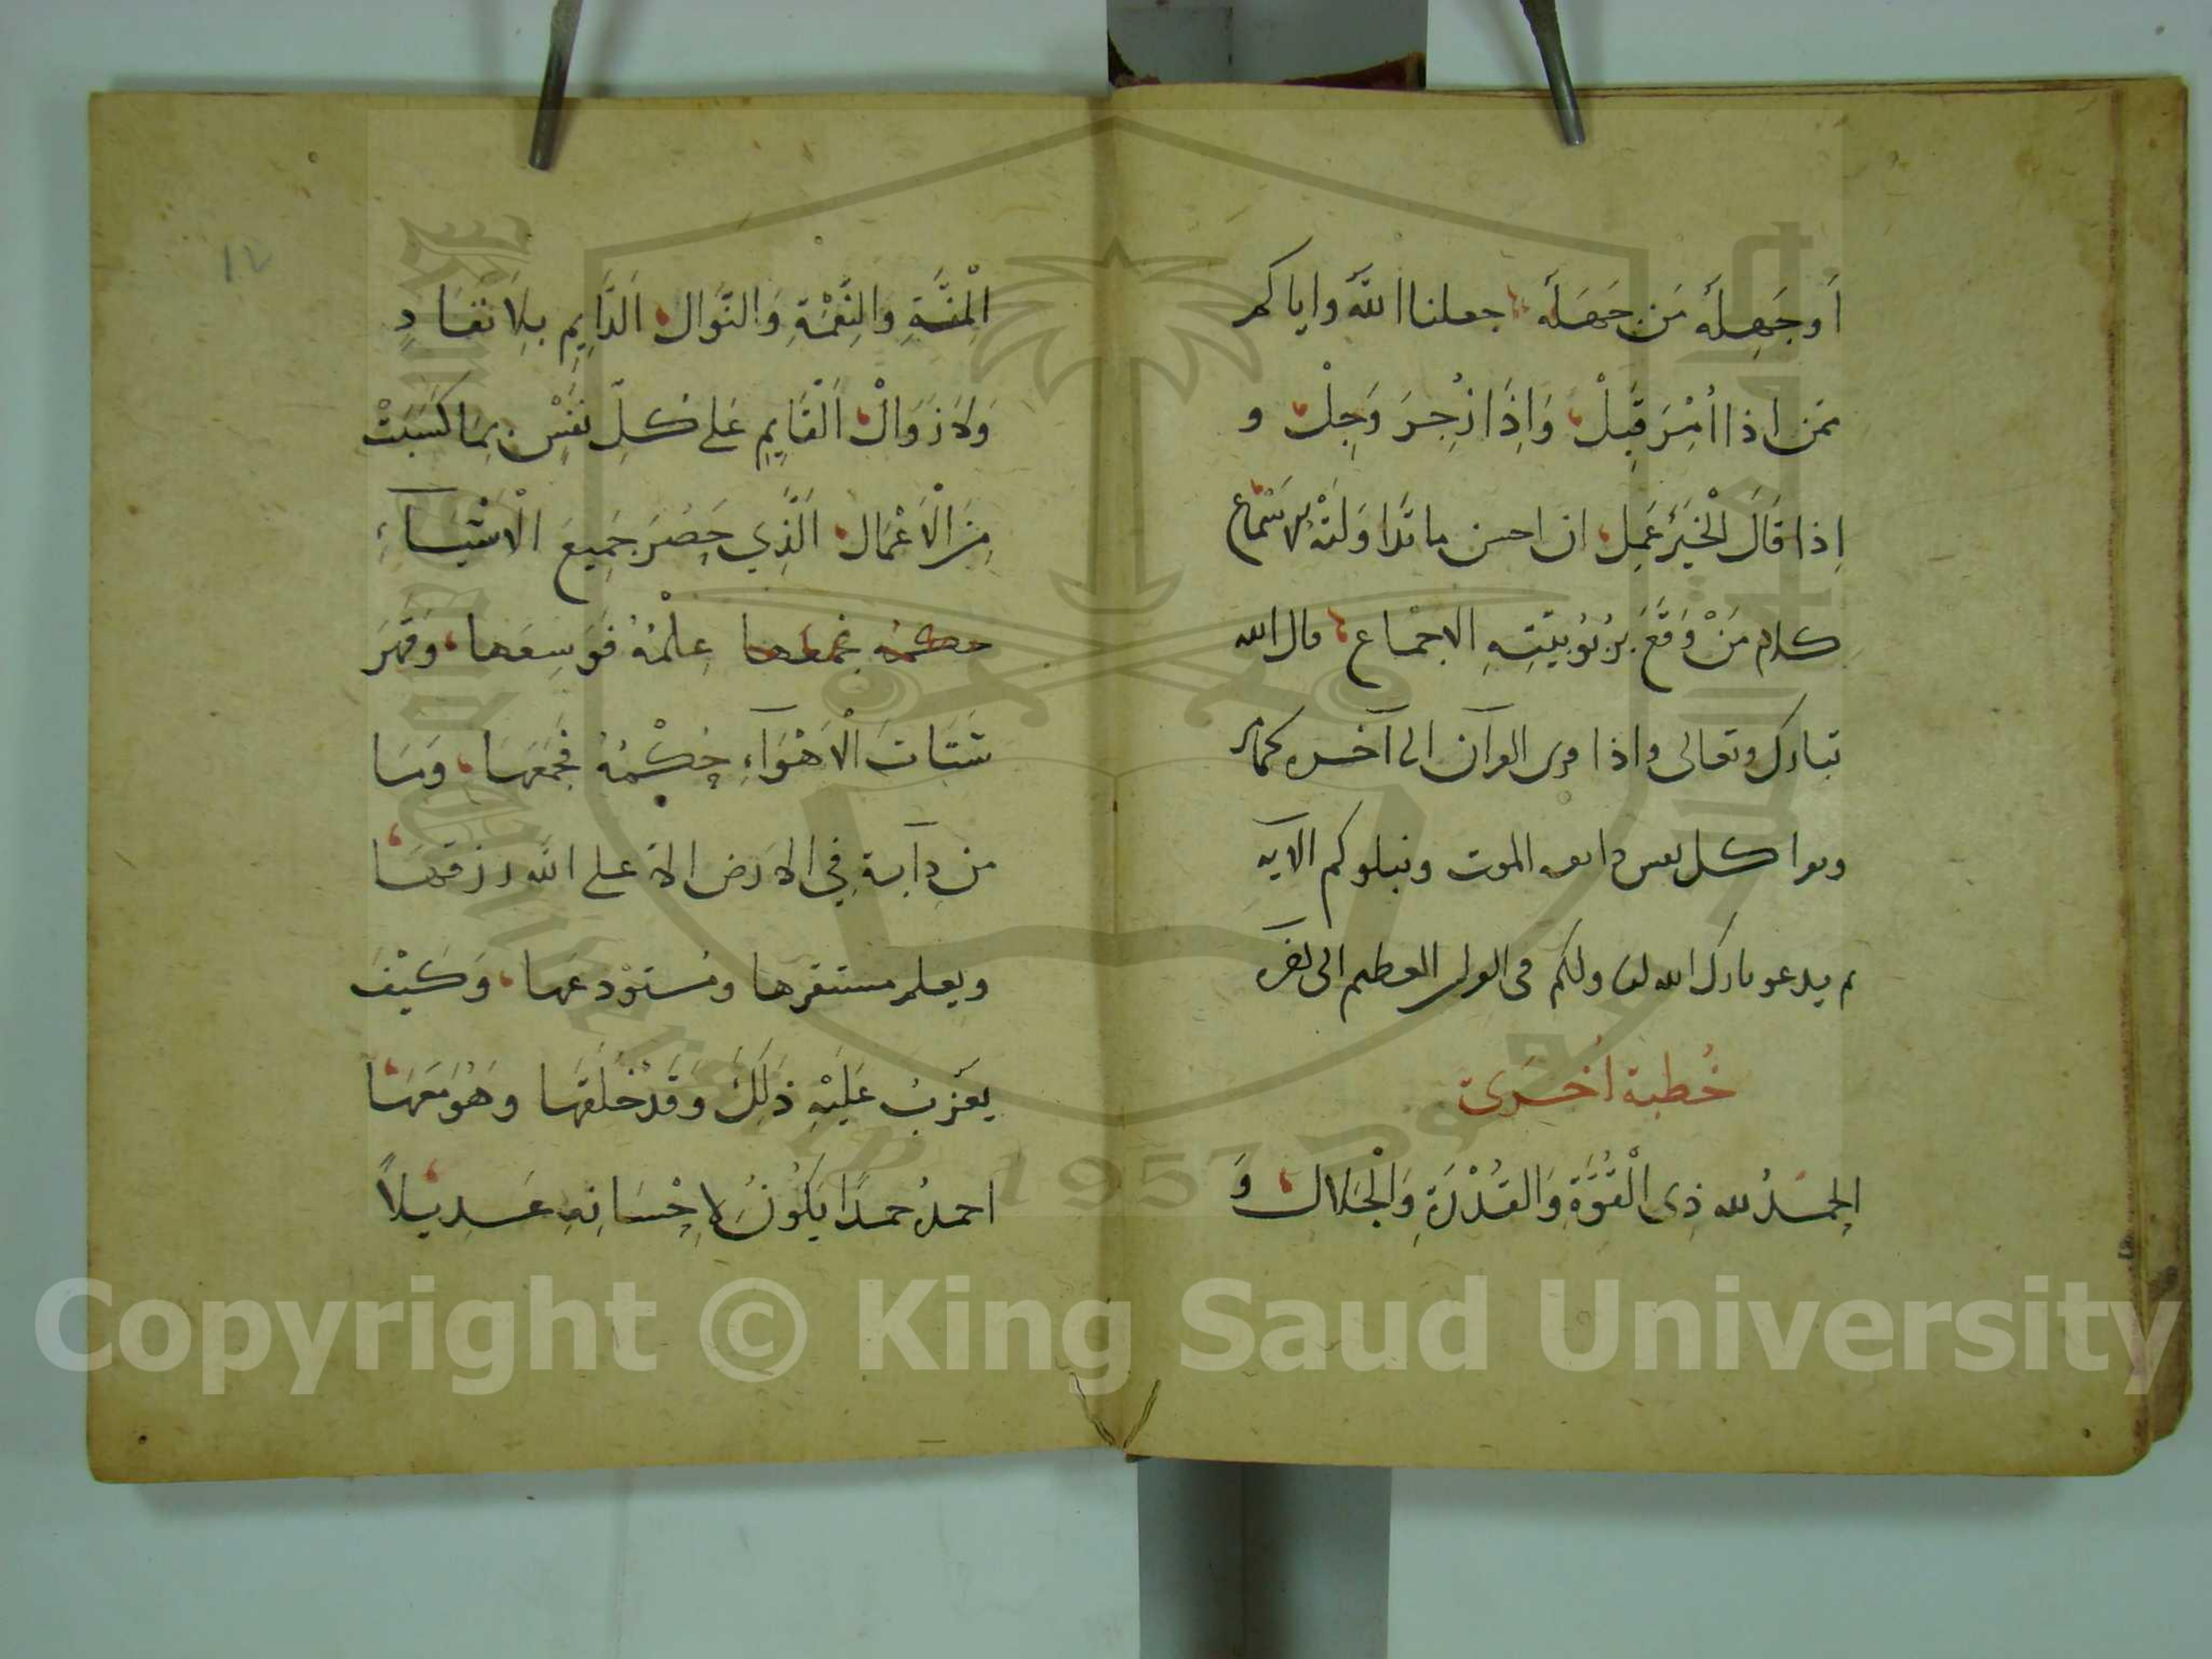 أَو جَهِلَه مَن جَهَلَه جعلنا الله واياكم
ممن اذا اُمِرَ قَبِلْ وَاِذَا زُجِرَ وَجِلْ و
اِذا قَالَ الْخَيْرَ عَمِل ان احسن ما تلا وَلَذّ للاسْمَاع
كلام مَنْ وَقَّعَ بِرُبُوبِيَّتِهِ الاجْمَاع قال الله
تبارك وتعالى واذا قرى القرآن الى آخره كما مر
ويقرا كل نفس ذايقه الموت ونبلوكم الآيه
ثم يدعو بارك الله لنا ولكم فى القرآن العظيم الى اخره
خُطبة اُخرى
الحمدُ لله ذِى الْقُوَّةِ وَالقُدْرَةِ وَالْجَلال وَ
١٧
الْمِنَّةِ وَالنِّعْمَةِ وَالنَّوَال الدَّايِمِ بِلَا نَفَادٍ
وَلَا زَوَالْ الْقَايِمِ عَلى كُلِّ نَفْسٍ بِمَا كَسَبَتْ
مِنَ الْاَعْمَال الَّذِي حَصَرَ جَمِيعَ الْاَشْيَآءِ
حكمه فجمعها عِلْمُهُ فَوَسِعَها وَقَهَرَ
شَتَاتَ الْاَهْوَآءِ حُكْمُهُ فَجَمَعَهَا وَمَا
من دآبة فِي الارض الا على الله رزقها
ويعلم مستقرها ومُستوْدعَها وَكَيْفَ
يعْزبُ عَلَيْهِ ذَلِكَ وَقَدْ خَلَقَهَا وَهُوَ مَعَهَا
احمدُه حمدًا يَكُونُ لِاِحْسَانِهِ عَدِيلًا
جامعة الملك سعود
King Saud University
1957
Copyright © King Saud University